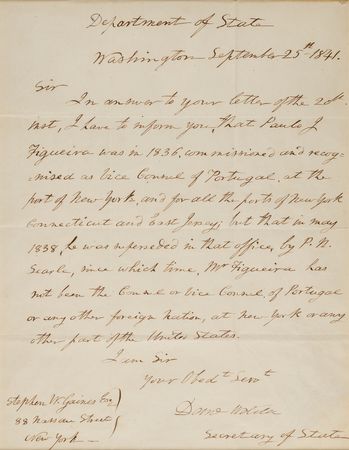 Department of State
Washington September 25th 1841.
Sir
In answer to your letter of the 20th
inst, I have to inform you, that Paulo J.
Figueira was in 1836, commissioned and recog-
nised as Vice Consul of Portugal, at the
port of New York, and for all the ports of New York
Connecticut and East Jersey; but that in may
1838, he was superseded in that office, by P. N.
Searle, since which time, Mr Figueira has
not been the Consul or Vice Consul, of Portugal
or any other foreign nation, at New York or any
other part of the United States.
I am Sir
Your Obedt Servt
Stephen W. Gaines Esq
Danl Webster
88 Nassau Street
Secretary of State
New York